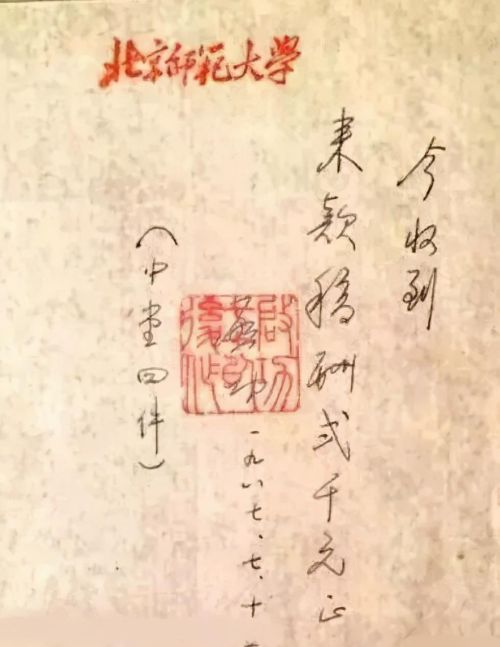 北京师範大学
今收到
来款稿酬弍千元正
一九八七、七、十
（中堂四件）